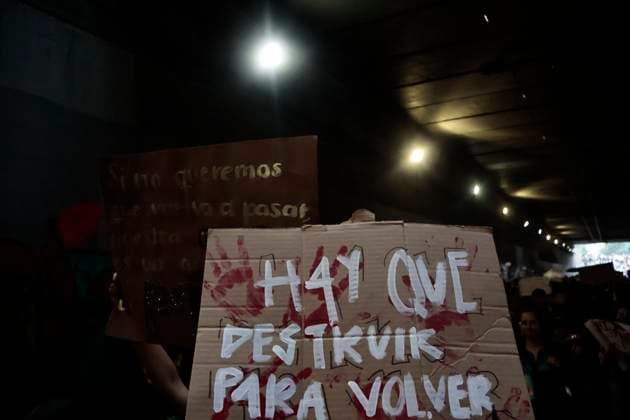 Si no queremos
que vuelva a pasar
HAY QUE
DESTRUIR
PARA VOLVER